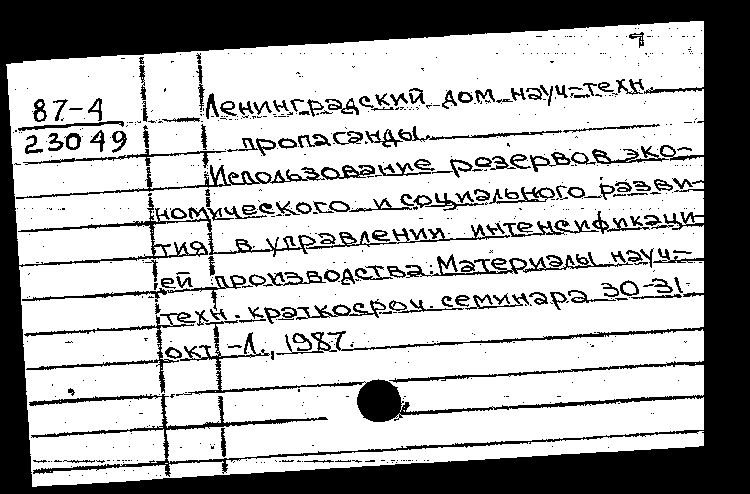 7
87-4
23049
Ленинградский дом науч=техн.
пропаганды.
Использование резервов эко-
номического и социального разви-
тия в управлении интенсификаци-
ей производства: Материалы науч.=
техн. краткосроч. семинара 30-31
окт -Л., 1987.